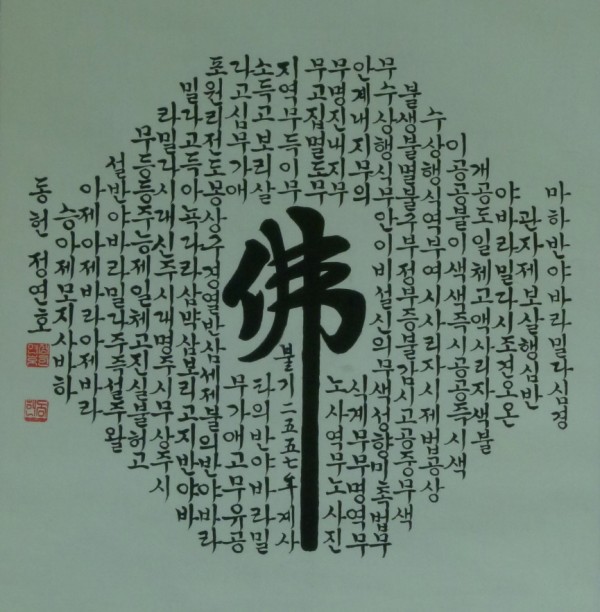 마하반야바라밀다심경
관자제보살행심반
야바라밀다시조견오온
개공도일체고액사리자색불
이공공불이색색즉시공공즉시색
수상행식역부여시사리자시제법공상
불생불멸불구부정부증불감시고공중무색
무수상행식무안이비설신의무색성향미촉법무
안계내지무의
식계무무명역무
무명진내지무
노사역무노사진
무고집멸도무
지역무득이무
소득고보리살
타의반야바라밀
다고심무가애
무가애고무유공
포원리전도몽상구경열반삼세제불의반야바라
밀다고득아뇩다라삼먁삼보리고지반야바
라밀다시대신주시대명주시무상주시
무등등주능제일체고진실불허고
설반야바라밀다주즉설주왈
아제아제바라아제바라
승아제모지사바하
佛
불기二五五七年계사
동헌 정연호